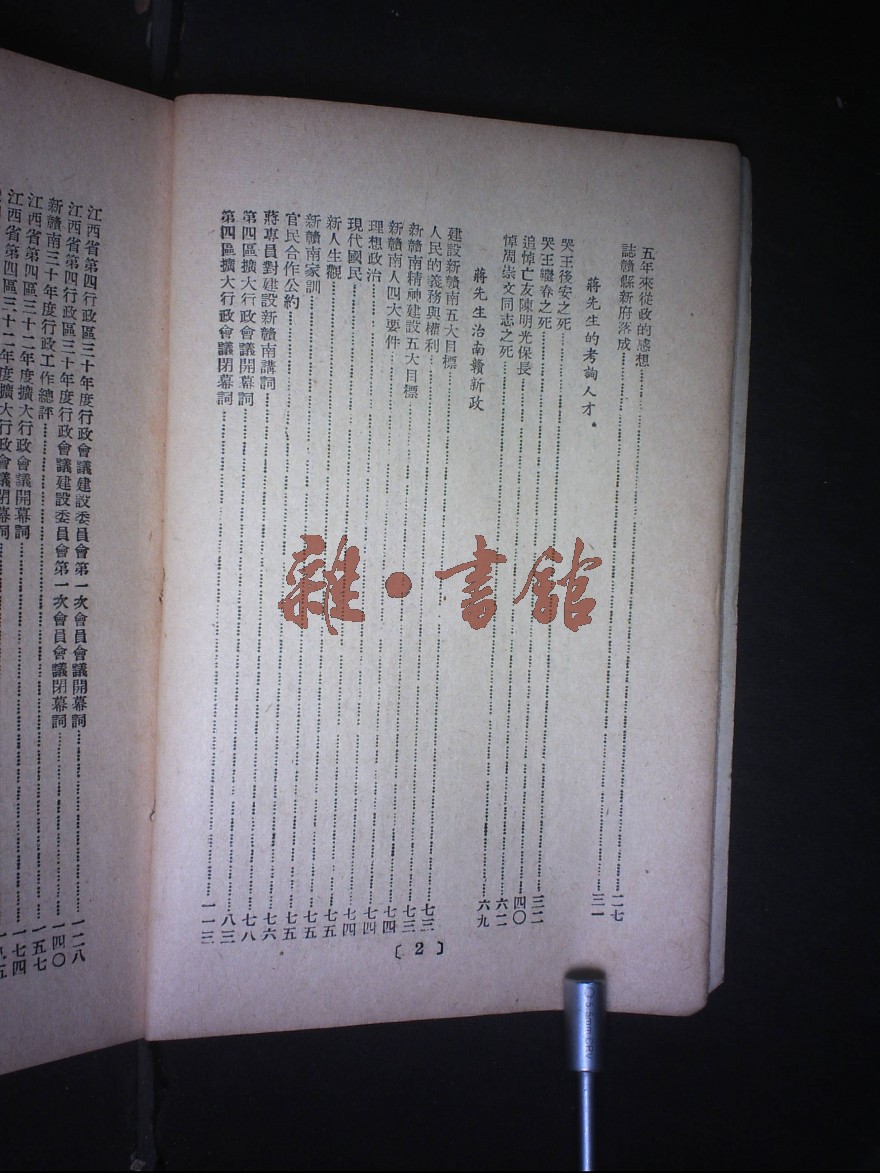 五年來從政的感想……二七
誌贛縣新府落成……三一
蔣先生的考詢人才。
哭王後安之死……三二
哭王繼春之死……四〇
追悼亡友陳明光保長……六二
悼周崇文同志之死……六九
蔣先生治南贛新政
建設新贛南五大目標……七三
人民的義務與權利……七三
新贛南精神建設五大目標……七四
新贛南人四大要件……七四
理想政治……七四
現代國民……七五
新人生觀……七五
新贛南家訓……七五
官民合作公約……七六
蔣專員對建設新贛南講詞……七八
第四區擴大行政會議開幕詞……八三
第四區擴大行政會議閉幕詞……一一三
〔2〕
江西省第四行政區三十年度行政會議建設委員會第一次會員會議開幕詞……一二八
江西省第四行政區三十年度行政會議建設委員會第一次會員會議閉幕詞……一四〇
新贛南三十年度行政工作總評……一五七
江西省第四區三十二年度擴大行政會議開幕詞……一七四
江西省第四區三十二年度擴大行政會議閉幕詞……一九五
雜·書館
5.5mm CRV